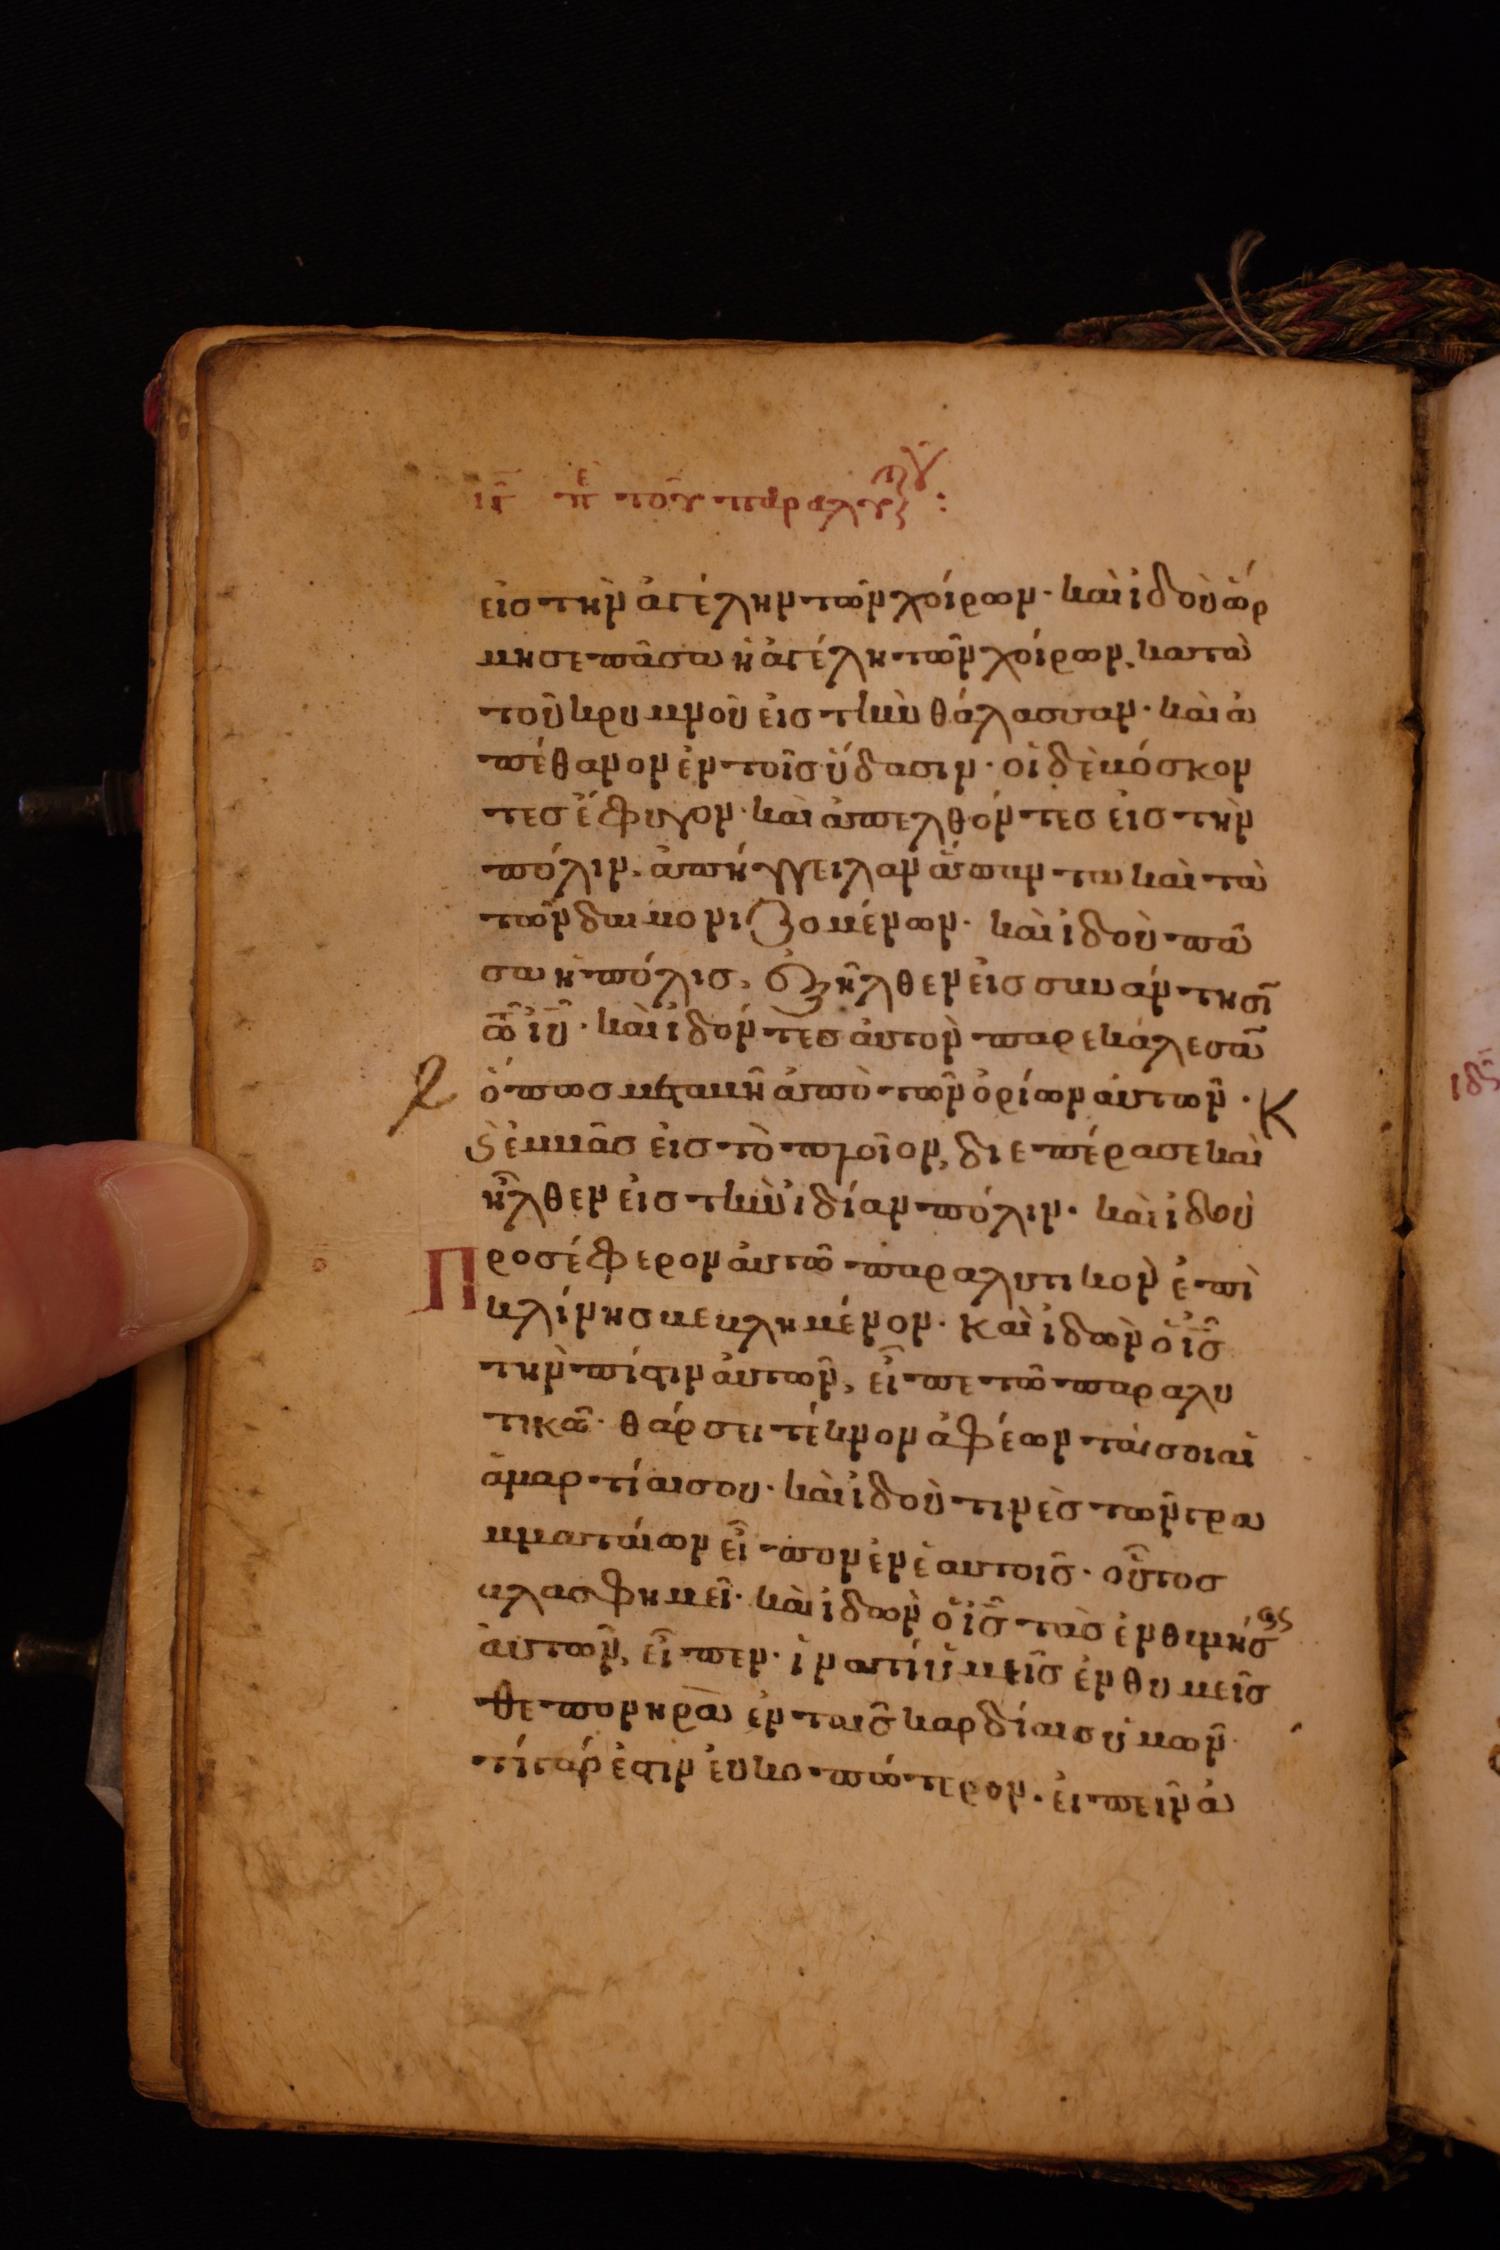 ιγ πε τοῦ παραλυτικοῦ:
εἰς τὴν ἀγέλην τῶν χοίρων· καὶ ἰδοὺ ὥρ
μησε πᾶσα ἡ ἀγέλη τῶν χοίρων, κατὰ
τοῦ κρημνοῦ εἰς τὴν θάλασσαν· καὶ ἀ
πέθανον ἐν τοῖς ὕδασιν· οἱ δὲ βόσκον
τες ἔφυγον· καὶ ἀπελθόντες εἰς τὴν
πόλιν, ἀπήγγειλαν ἅπαντα καὶ τὰ
τῶν δαιμονιζομένων· καὶ ἰδοὺ πᾶ
σα ἡ πόλις, ἐξῆλθεν εἰς συνάντησῖ
τῶ ἰῦ· καὶ ἰδόντες αὐτὸν παρεκάλεσᾶ
ὅπως μεταβῆ ἀπὸ τῶν ὁρίων αὐτῶν· Κ
ϛ ἐμβᾶς εἰς τὸ πλοῖον, διεπέρασε καὶ
ἦλθεν εἰς τὴν ἰδίαν πόλιν· καὶ ἰδοὺ
Προσέφερον αὐτῶ παραλυτικὸν ἐπὶ
κλίνης βεβλημένον· καὶ ἰδὼν ὁ ἰς
τὴν πίστιν αὐτῶν, εἶπε τῶ παραλυ
τικῶ· θάρσει τέκνον ἀφέωνταί σοι αἱ
ἁμαρτίαι σου· καὶ ἰδοὺ τινὲς τῶν γρα
μματαίων εἶπον ἐν ἑαυτοῖς· οὗτος
βλασφημεῖ· καὶ ἰδὼν ὁ ἰς τὰς ἐνθυμήσεις
αὐτῶν, εἶπεν· ἱνατί ὑμεῖς ἐνθυμεῖς
θε πονηρὰ ἐν ταῖς καρδίαις ὑμῶν·
τί γάρ ἐστιν εὐκοπώτερον· εἰπεῖν ἀ